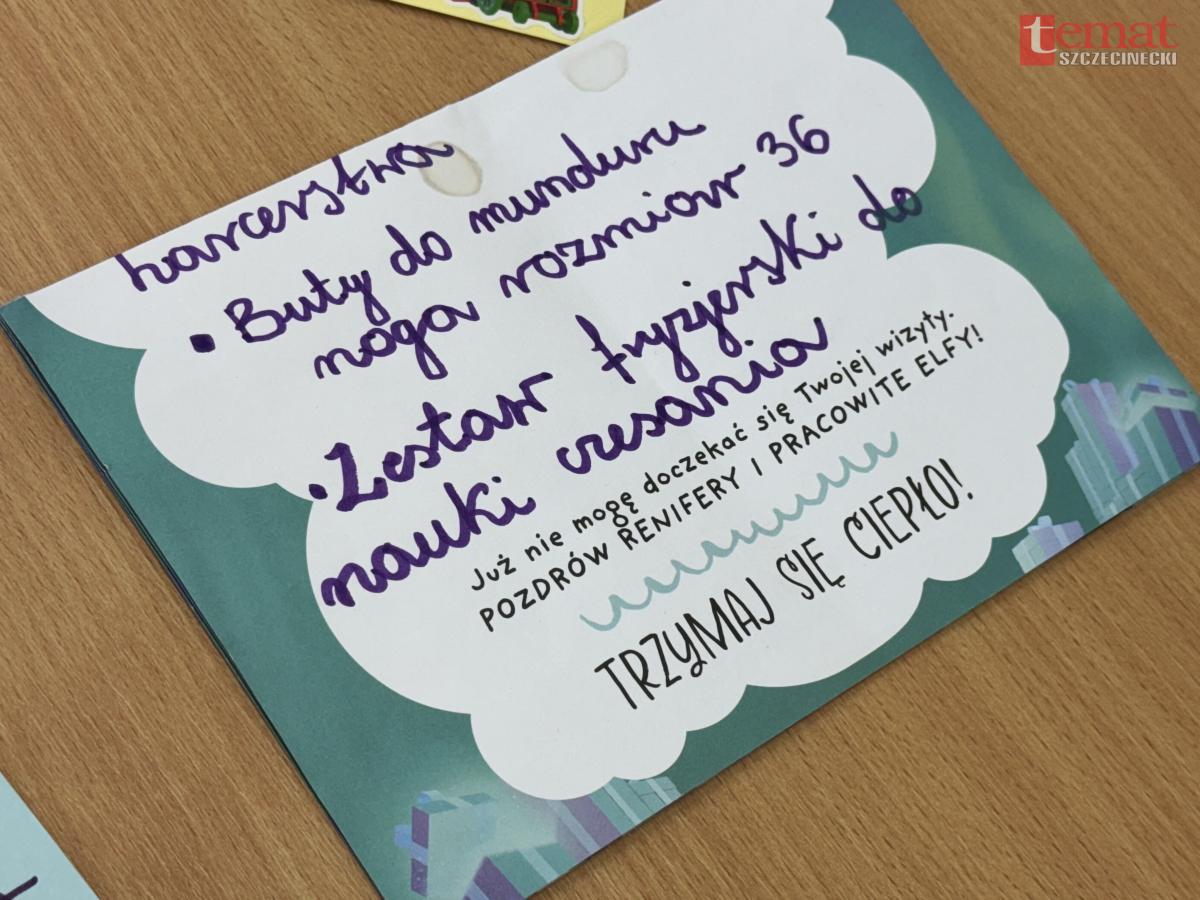 temat
SZCZECINECKI
harcerstwa
• Buty do munduru
noga rozmiar 36
• Zestaw fryzjerski do
nauki czesania
Już nie mogę doczekać się Twojej wizyty.
POZDRÓW RENIFERY I PRACOWITE ELFY!
TRZYMAJ SIĘ CIEPŁO!